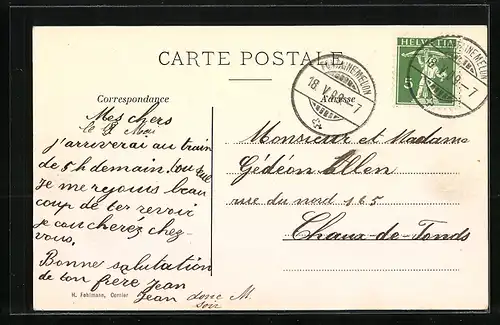 CARTE POSTALE
HELVETIA
5
FONTAINEMELON
18. V. 09. - 7
FONTAINEMELON
18. V. 09. - 7
Correspondance
Adresse
Mes chers
le
J'arriverai au train
de 5 h demain
Je me rejouis beau
coup de te revoir
je coucherés chez-
vous.
Bonne salutation
de ton frère Jean
Jean donc M.
soir
Monsieur et Madame
Gédéon Allen
rue du nord 165
Chaux-de-Fonds
H. Fehlmann, Cernier